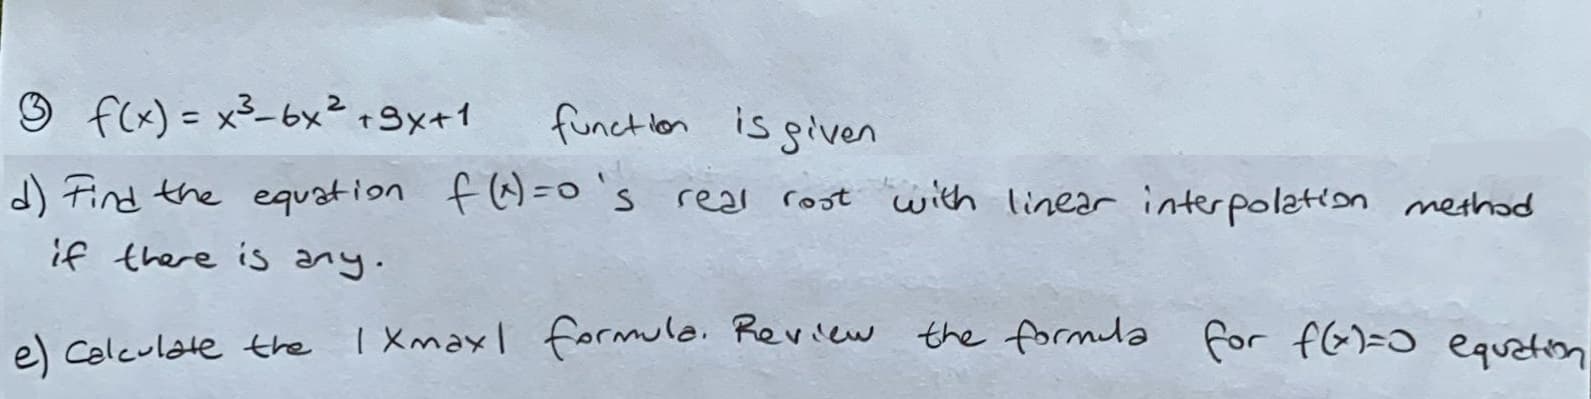 ③ f(x) = x³-6x² +9x+1 function is given
d) Find the equation f(x)=0's real root with linear interpolation method
if there is any.
e) Calculate the |Xmax| formula. Review the formula for f(x)=0 equation